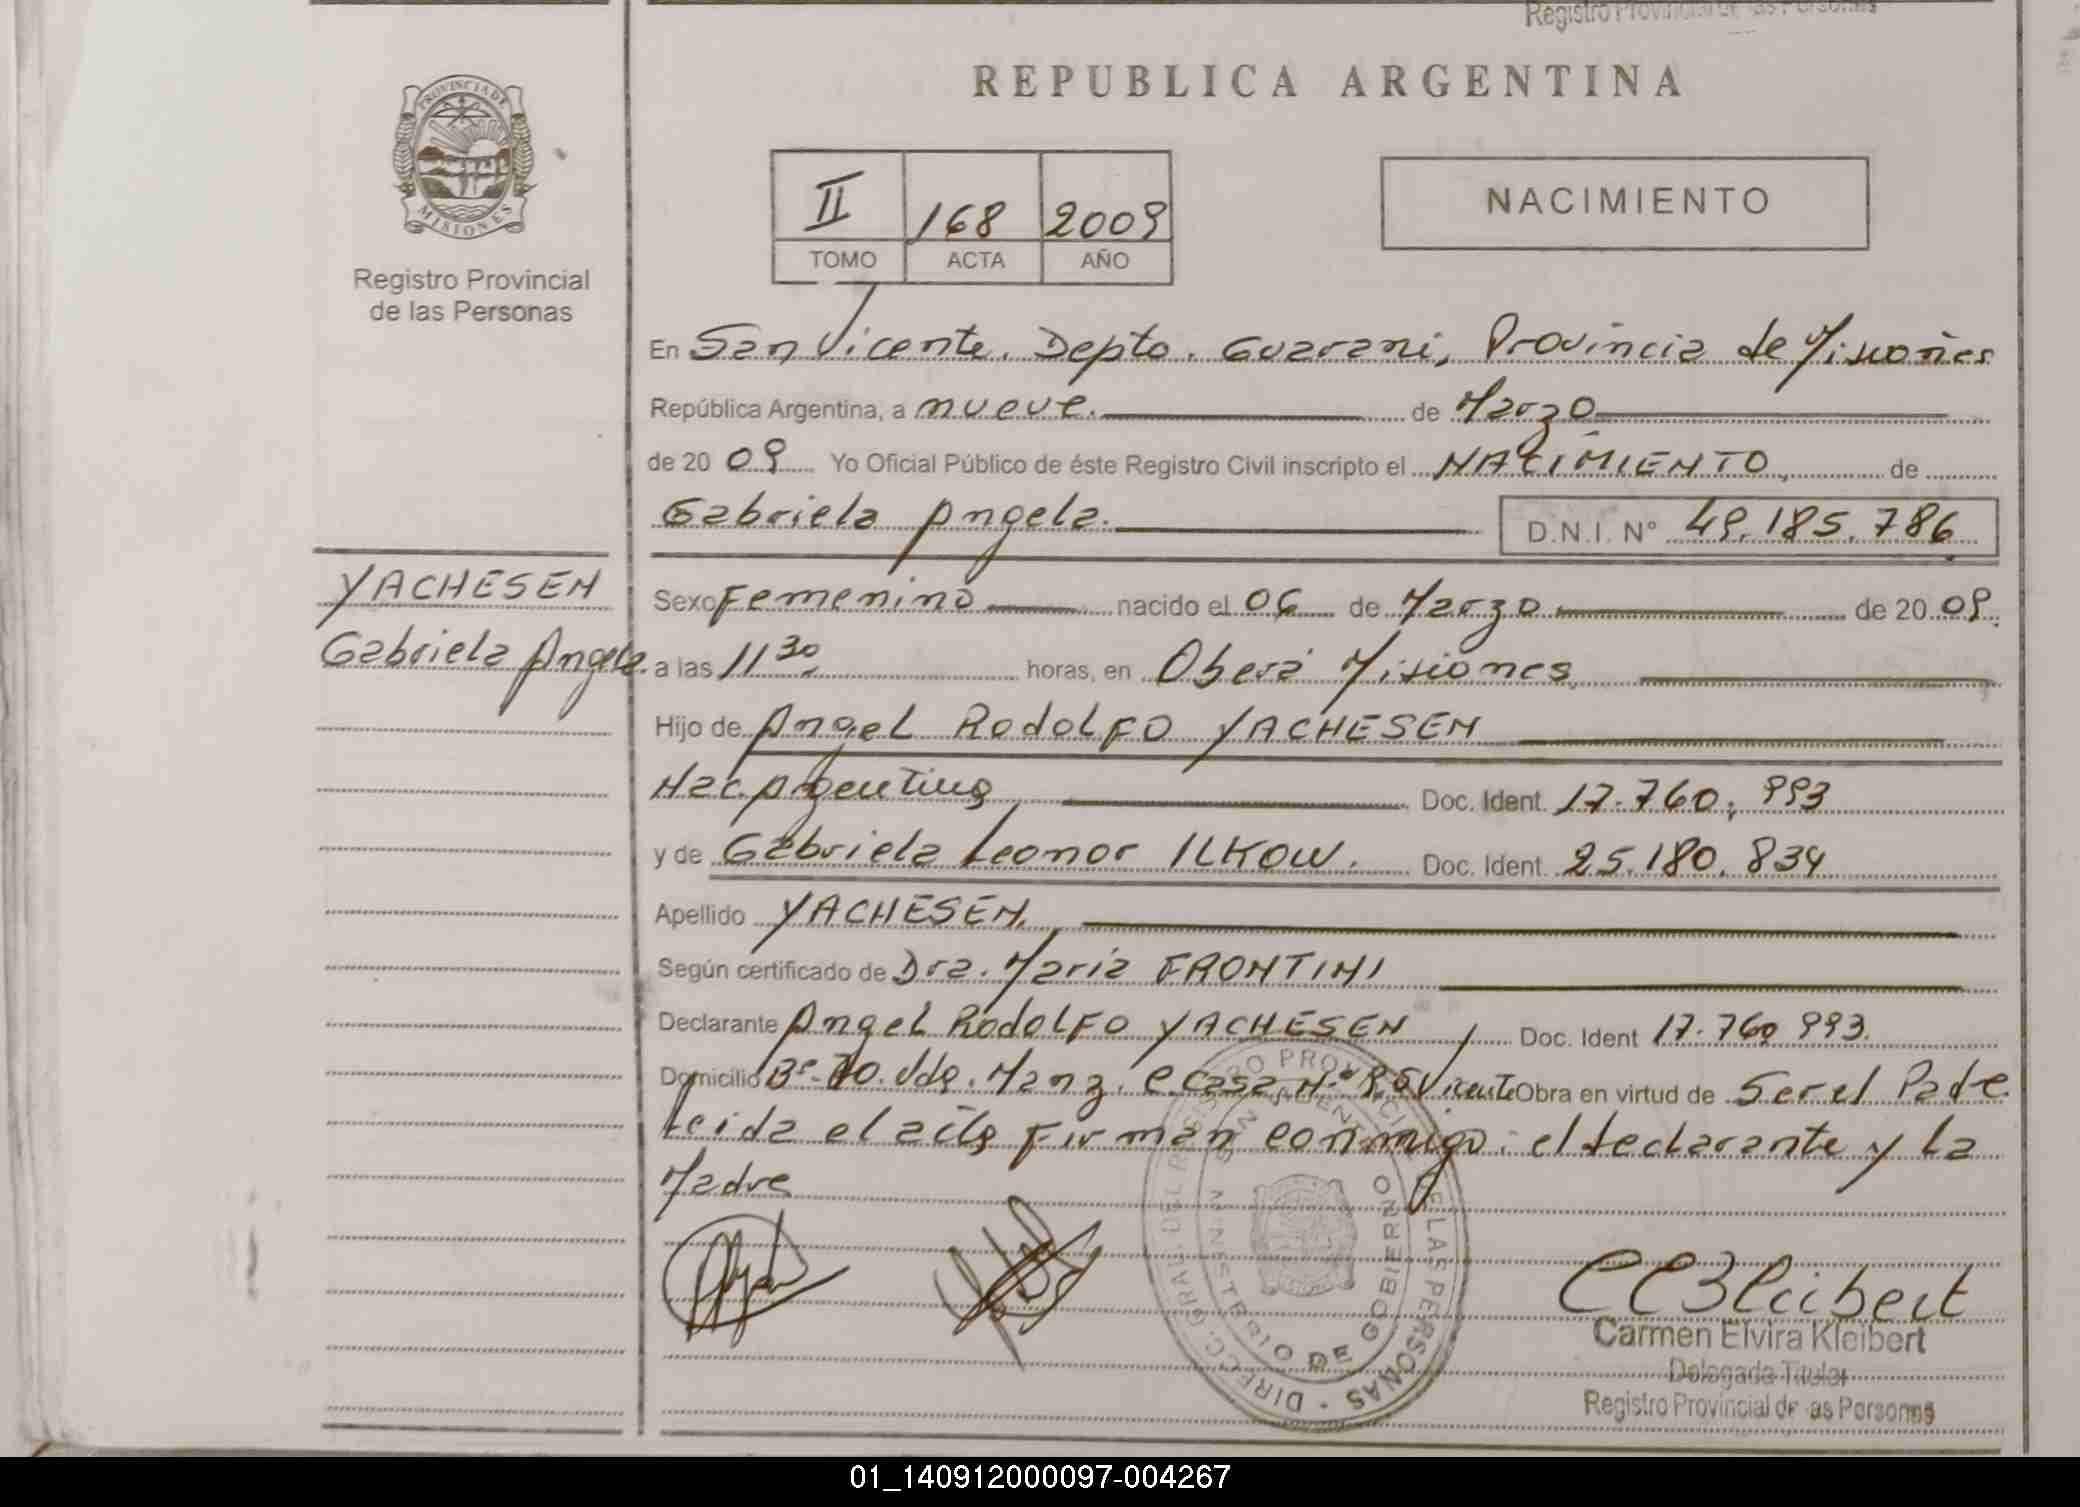 Registro Provincial de las Personas
REPUBLICA ARGENTINA
PROVINCIA DE
MISIONES
Registro Provincial
de las Personas
II 168 2009
TOMO ACTA AÑO
NACIMIENTO
En San Vicente, Depto. Guarani, Provincia de Misiones
República Argentina, a nueve. de Marzo
de 2009 Yo Oficial Público de éste Registro Civil inscripto el NACIMIENTO, de
Gabriela Angela. D.N.I. N° 49.185.786
YACHESEN
Gabriela Angela.
Sexo Femenino nacido el 06 de Marzo de 2009.
a las 11 30 horas, en Oberá Misiones
Hijo de Angel Rodolfo YACHESEN
Nac. Argentina Doc. Ident. 17.760.993
y de Gabriela Leonor ILKOW. Doc. Ident. 25.180.834
Apellido YACHESEN.
Según certificado de Dra. Maria FRONTINI
Declarante Angel Rodolfo YACHESEN Doc. Ident 17.760.993.
Domicilio B°. 70. Vdas. Manz. e casa N° 8, S. Vicente Obra en virtud de Ser el Padre
Leida el acta firman conmigo: el declarante y La
Madre
DIREC. GRAL. DEL REGISTRO PROVINCIAL DE LAS PERSONAS
MINISTERIO DE GOBIERNO
CEKleibert
Carmen Elvira Kleibert
Delegada Titular
Registro Provincial de las Personas
01_140912000097-004267